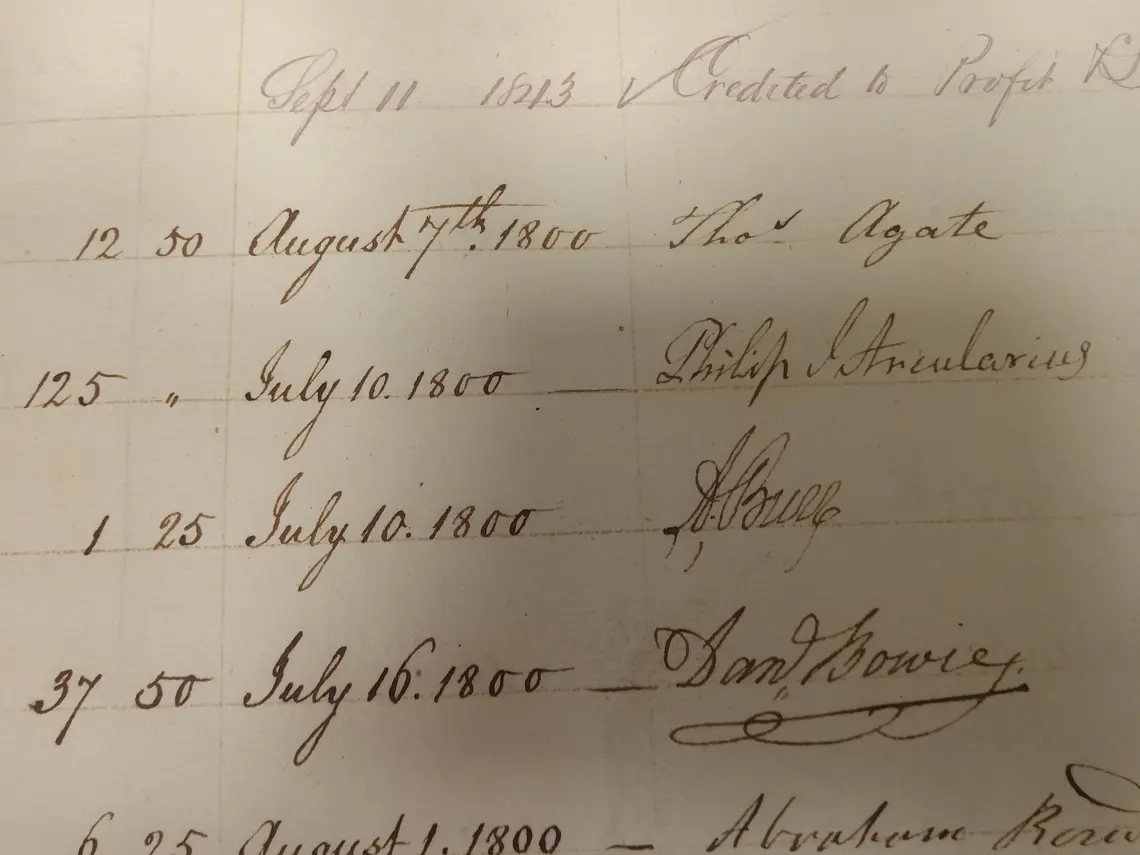 Sept 11 1843 Credited to Profit &
12 50 August 7th. 1800 Thos Agate
125 " July 10. 1800 — Philip I Arcularius
1 25 July 10. 1800
37 50 July 16. 1800 — Danl Bowie
6 25 August 1. 1800 — Abraham